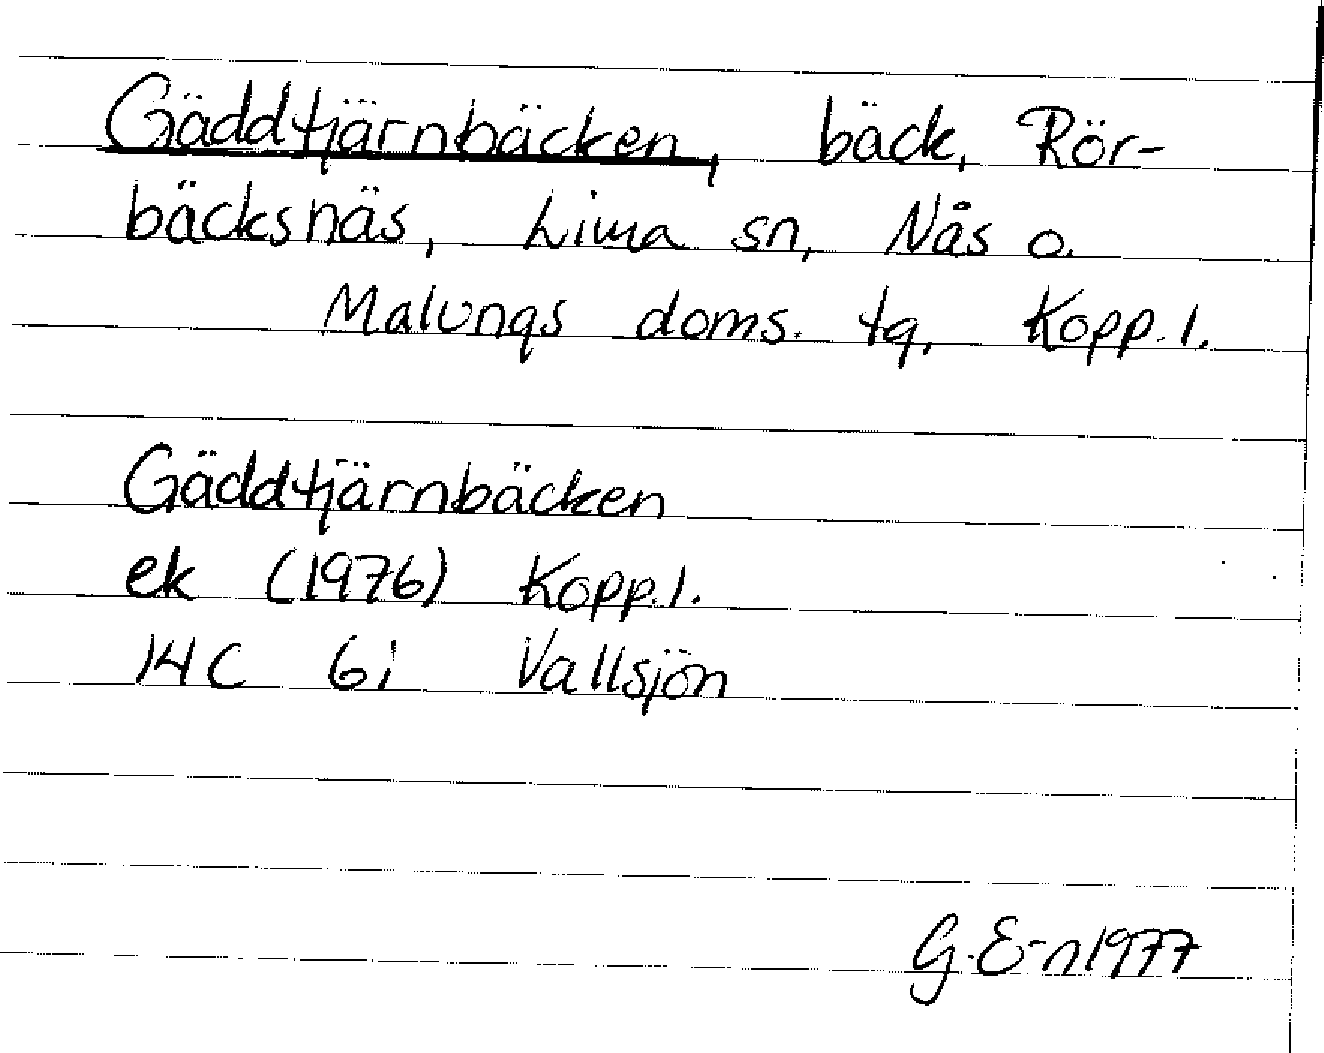 Gäddtjärnbäcken, bäck, Rör-
bäcksnäs, Lima sn, Nås o.
Malungs doms. tg, Kopp. l.
Gäddtjärnbäcken
ek (1976) Kopp. l.
14C 6i Vallsjön
G. E-n 1977